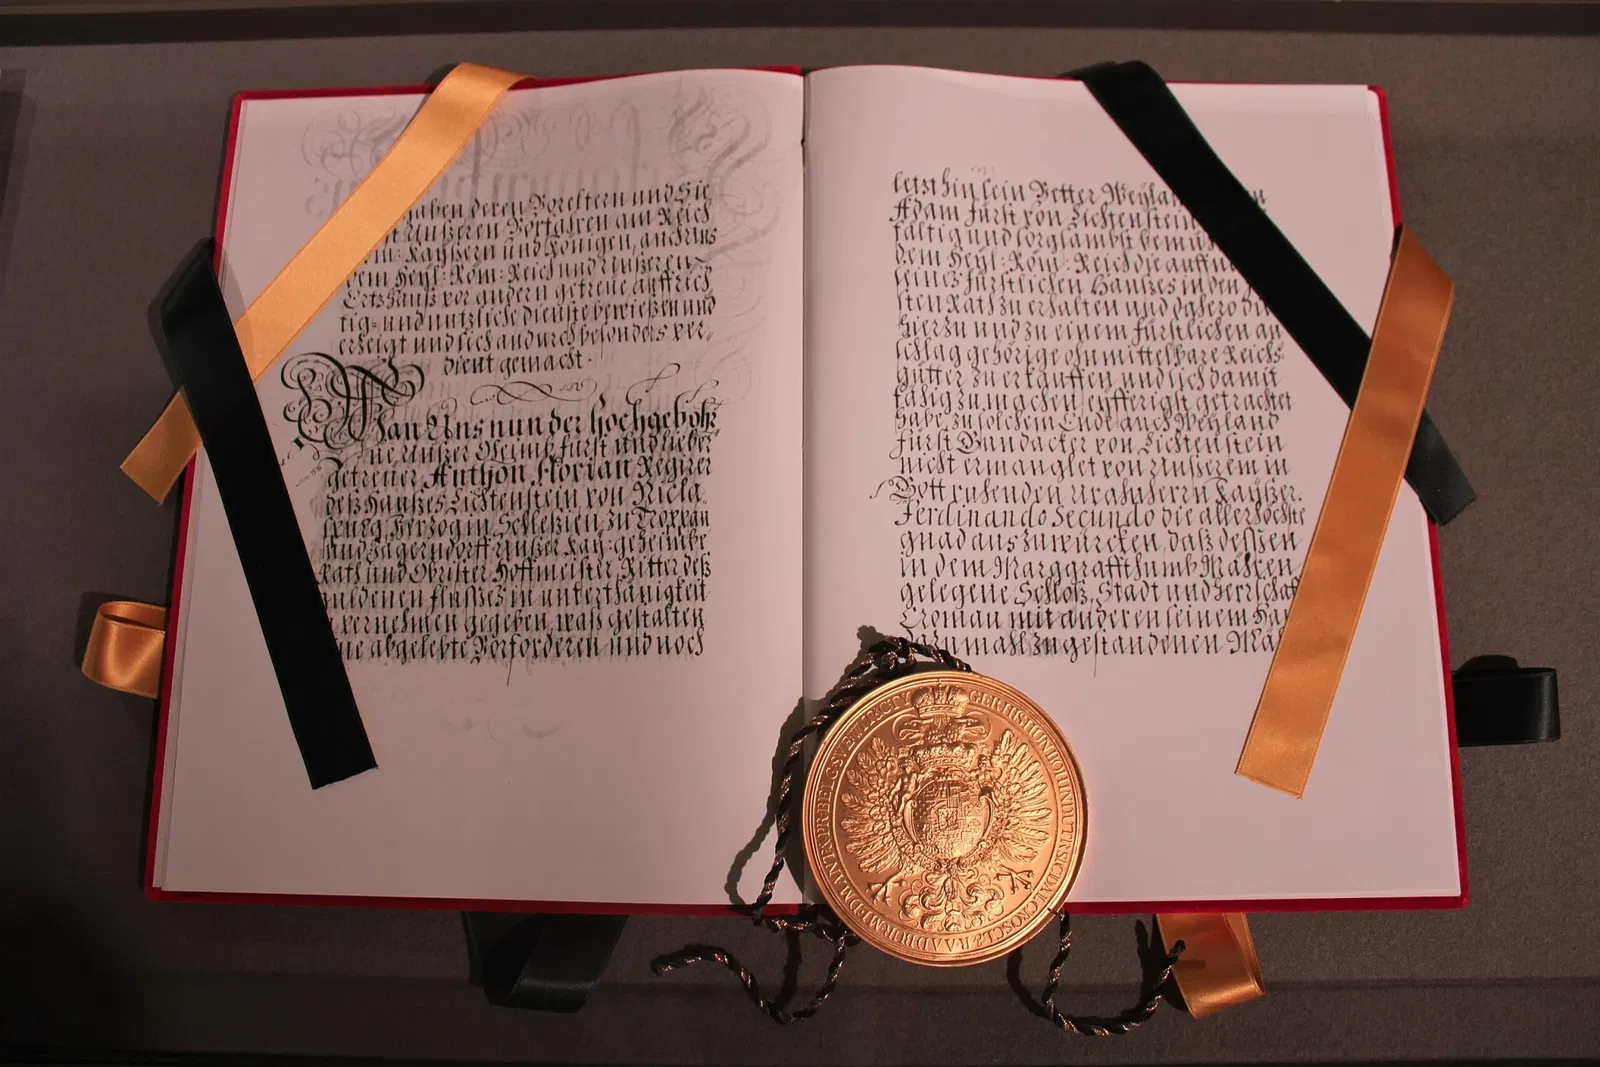 gaben deren Voreltern und Sie
Unßeren Vorfahren am Reich
Kayßern und Königen, auch Uns
dem Heyl: Röm: Reich und Unßeren
Ertzhauß vor andern getreue auffrich
tig- und nutzliche dienste bewießen und
erzeigt und sich andurch besonders ver-
dient gemacht.
Wan Uns nun der hochgebohr
ne Unßer Oheimb fürst und lieber
getreuer Anthon Florian Regirer
deß Haußes Liechtenstein von Nicla
spurg Hertzog in Schlesien zu Troppau
und Jägerndorff Unßer Kay: geheimbr
Rath und Obrister Hoffmeister Ritter deß
guldenen flusses in unterthänigkeit
vernehmen gegeben, waß gestalten
abgelebte Vorforderen und noch
letzthin sein Vetter Weylan
Adam fürst von Liechtenstein
fältig und sorgsambst bemüh
dem Heyl: Röm: Reich die auffna
seines fürstlichen Haußes in den
sten Rath zu erhalten und dahero die
hierzu und zu einem fürstlichen an
schlag gehörige ohnmittelbare Reichs
gütter zu erkauffen und sich damit
fähig zu machen eyfferigst getrachtet
habe, zu solchem Ende auch Weyland
fürst Gundacker von Liechtenstein
nicht ermanglet von Unßerem in
Gott ruhenden Uranherrn Kayßer
Ferdinando Secundo die allerhöchste
gnad auszuwürcken, daß deßen
in dem Marggraffthumb Mähren
gelegene Schloß, Stadt und Herrschaf
Cromau mit anderen seinem Hau
damahl zugestandenen Mäh